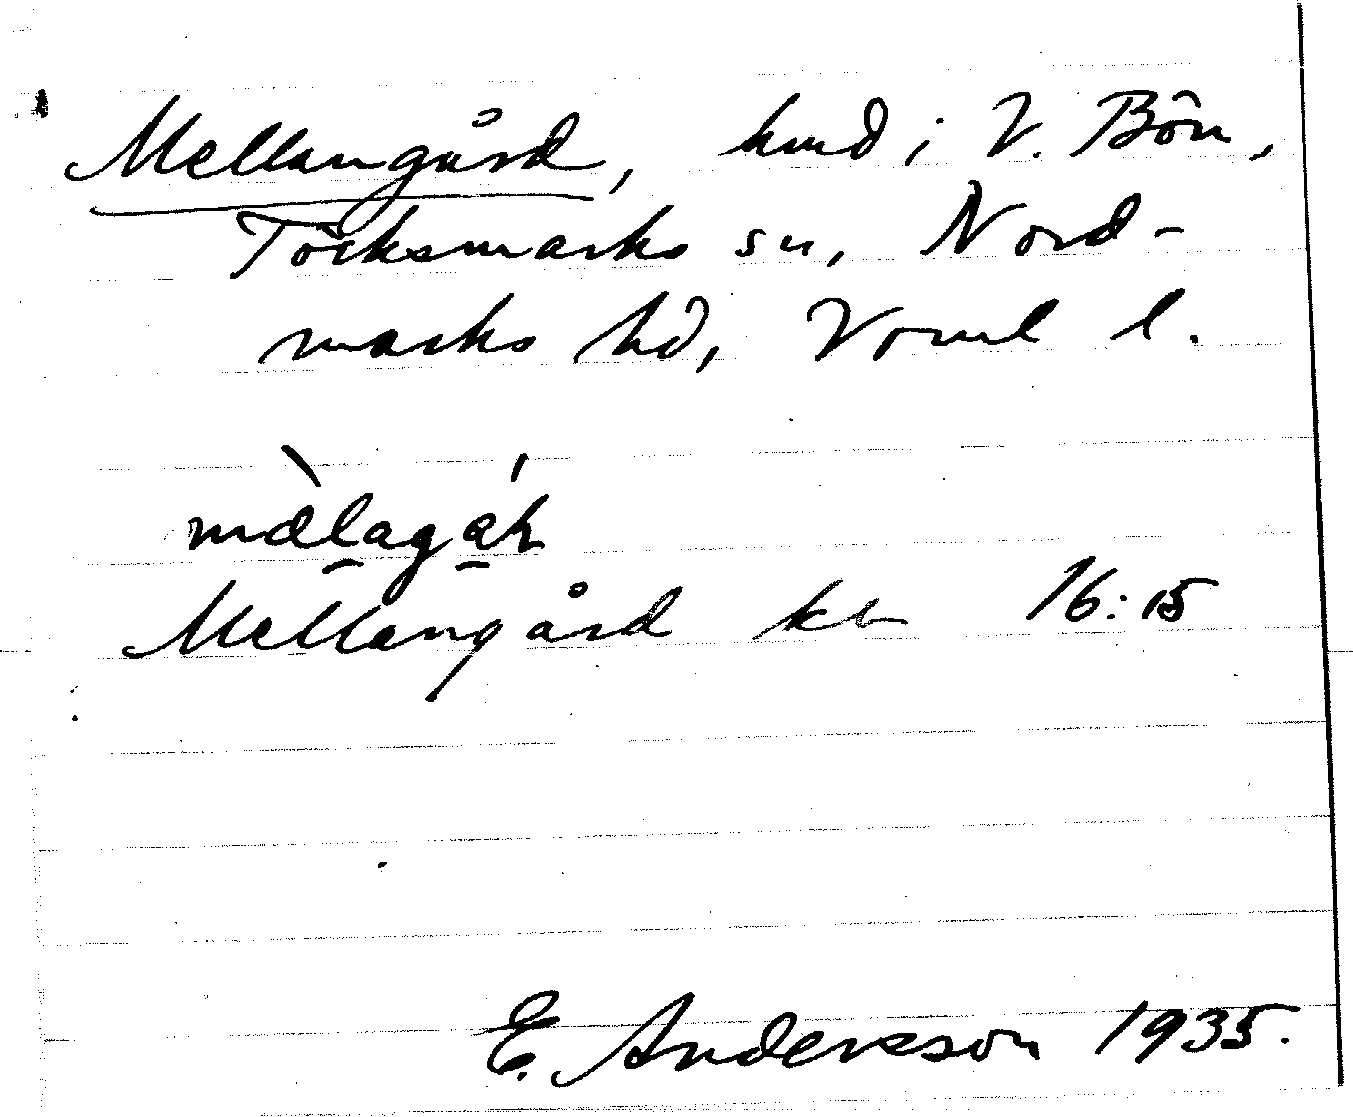 Mellangård, hmd i V. Bön,
Töcksmarks sn, Nord-
marks hd, Värml l.
Mellangård kbl 16:15
E. Andersson 1935.